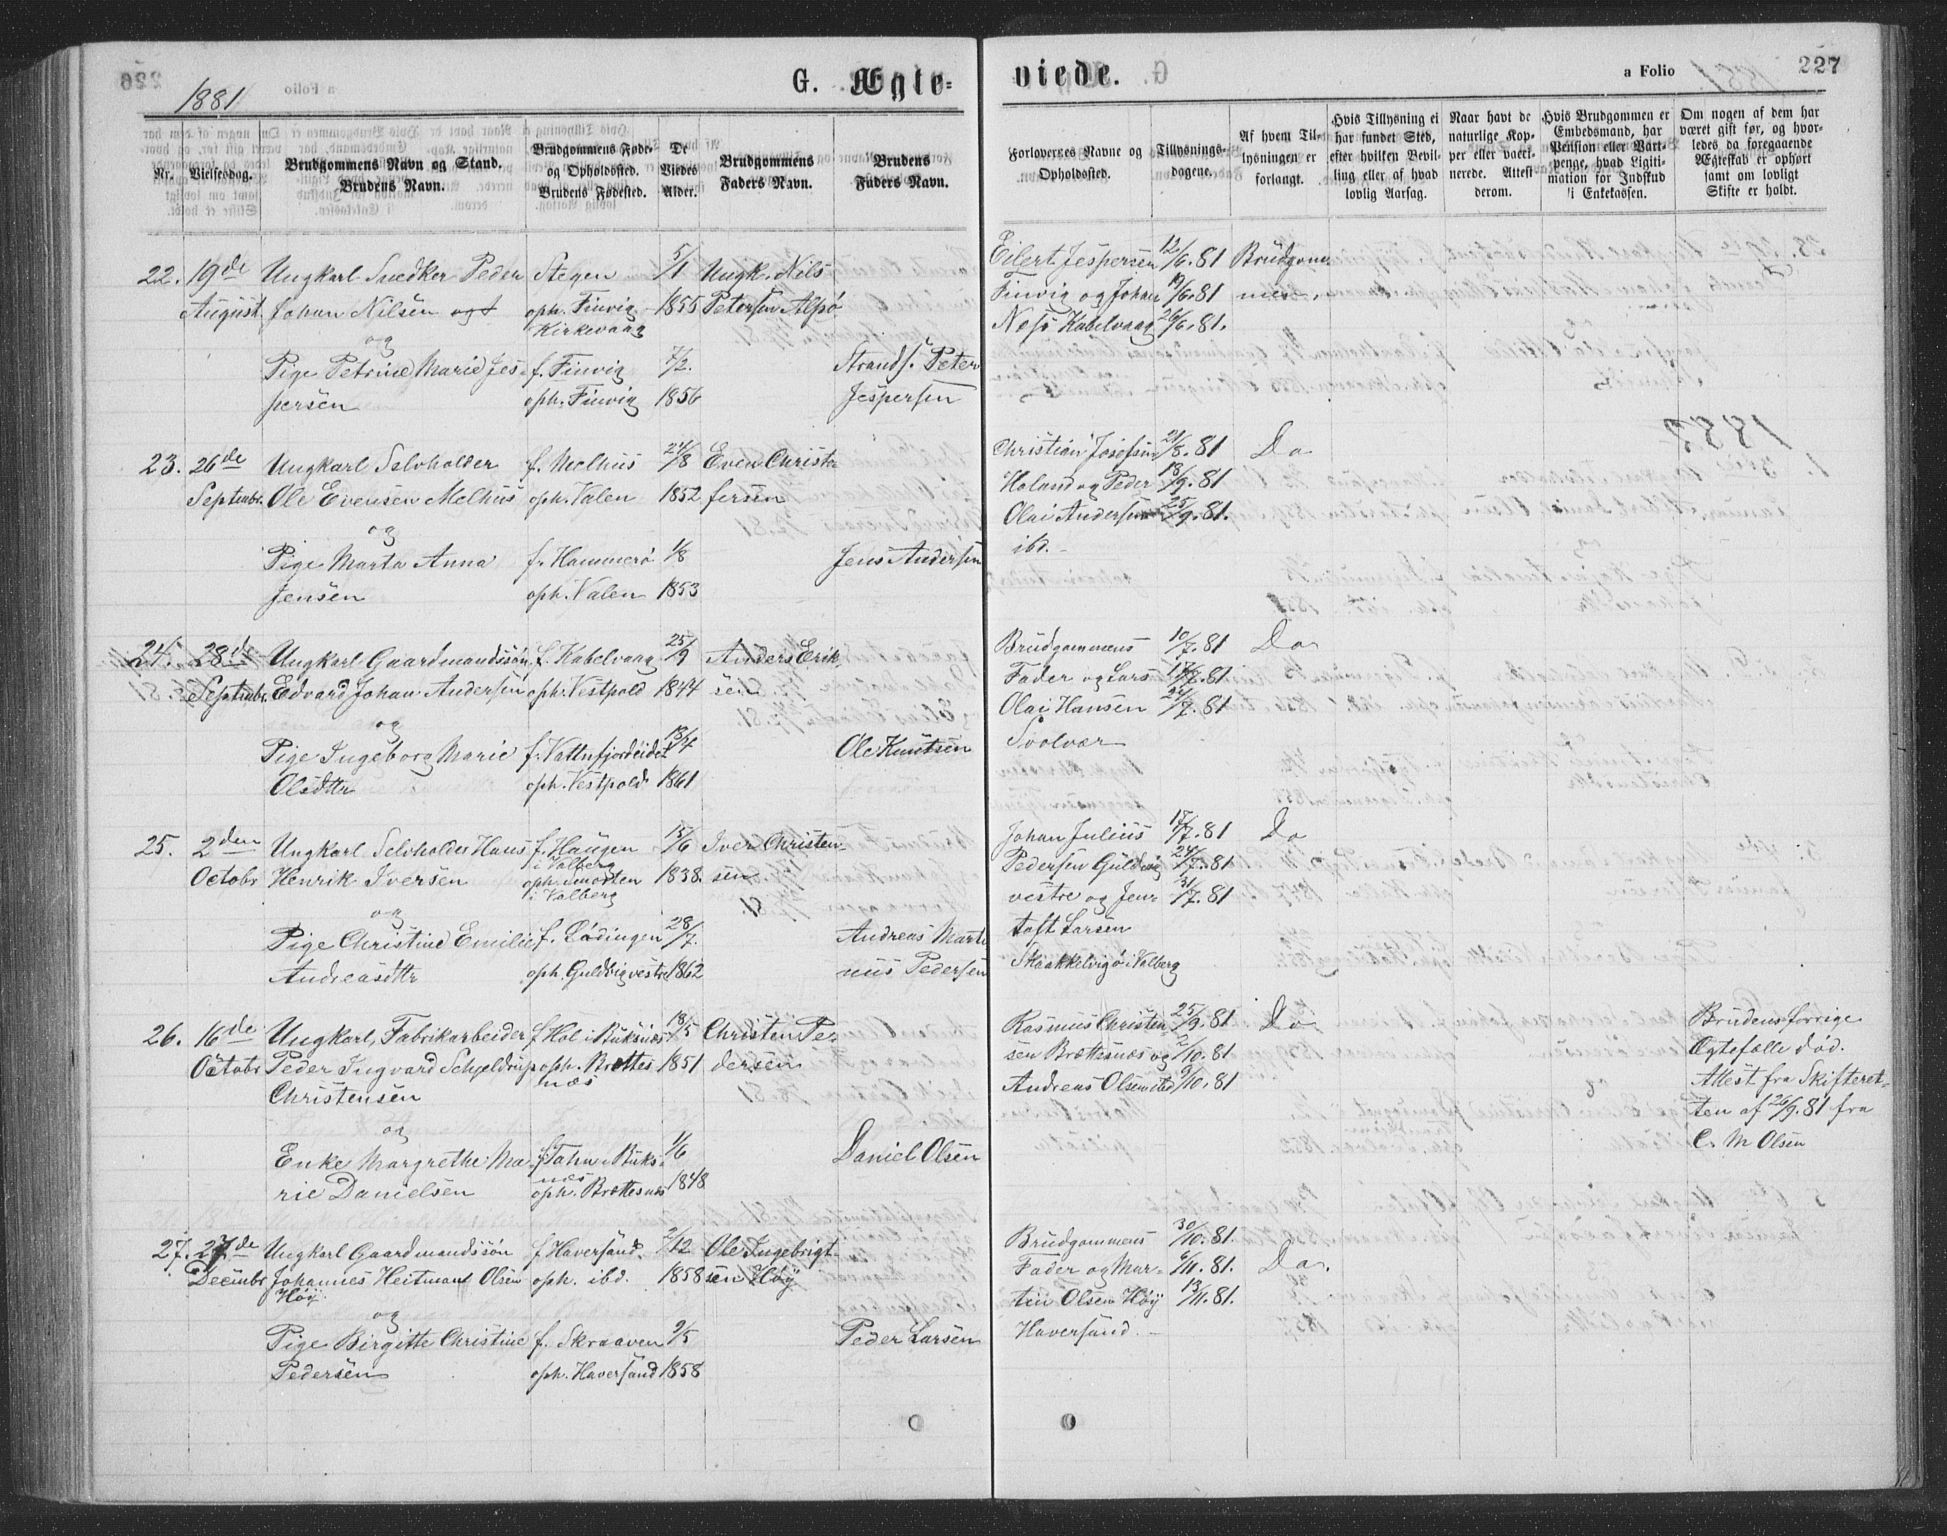 1881
G. Ægte=
viede.
a Folio
227
Nr.
Vielsesdag.
Brudgommens Navn og Stand.
Brudens Navn.
Brudgommens Føde-
og Opholdssted.
Brudens Fødested.
De
Viedes
Alder.
Brudgommens
Faders Navn.
Brudens
Faders Navn.
Forlovernes Navne og
Opholdssted.
Tillysnings-
dagene.
Af hvem Til-
lysningen er
forlangt.
Hvis Tillysning ei
har fundet Sted,
efter hvilken Bevil-
ling eller af hvad
lovlig Aarsag.
Naar havt de
naturlige Kop-
per eller vacci-
nerede. Attest
derom.
Hvis Brudgommen er
Embedsmand, har
Pension eller Vart-
penge, hvad Ligiti-
mation for Indskud
i Enkekassen.
Om nogen af dem har
været gift før, og hvor-
ledes da foregaaende
Ægteskab er ophørt
samt om lovligt
Skifte er holdt.
22. 19de Ungkarl Snedker Peder Stegen 5/1 Ungk. Nils Eilert Jespersen 12/6.81 Brudgom-
August Johan Nilsen oph. Finvig 1855 Petersen Alpö Finvig og Johan 19/6.81 men
og Kirkevaag Næss Kabelvaag 26/6.81.
Pige Petrine Marie Jes- f. Finvig 7/2. Strands. Peter
persen oph. Finvig 1856 Jespersen
23. 26de Ungkarl Selvholder f. Melhus 24/8 Even Christo Christian Josefsen 21/8.81 Do
Septmbr. Ole Evensen Melhus oph. Valen 1852 fersen Holand og Peder 18/9.81
og Olai Andersen 25/9.81.
Pige Marta Anna f. Hammerö 1/8 Jens Andersen ibd.
Jensen oph. Valen 1853
24. 28de Ungkarl Gaardmandssön f. Kabelvaag 25/9 Anders Erik- Brudgommens 10/7.81 Do
Septmbr. Edvard Johan Andersen oph. Vestpold 1844 sen Fader og Lars 17/7.81
og Olai Hansen 24/7.81
Pige Ingeborg Marie f. Vattnfjordeidet 13/4 Ole Knutsen Svolvær
Olsdttr oph. Vestpold 1861
25. 2den Ungkarl Selvholder Hans f. Haugen 15/6 Iver Christen- Johan Julius 17/7.81 Do
i Valberg
Octobr Henrik Iversen oph. Smorten 1838. sen Pedersen Guldvig 24/7.81
i Valberg
og vestre og Jen- 31/7.81
Pige Christine Emilie f. Lödingen 28/7. Andreas Marti toft Larsen
Andreasdttr oph. Guldvig vestre 1862 nus Pedersen Skaakkelvigö i Valberg
26. 16de Ungkarl, Fabrikarbeider f. Hol i Buksnæs 18/5 Christen Pe- Rasmus Christen 25/9.81 Do Brudens forrige
Octobr Peder Ingvard Schjeldrup oph. Brættes 1851 dersen sen Brættesnæs og 2/10.81 Ægtefælle död.
Christensen næs Andreas Olsen ibd 9/10.81 Attest fra Skifteret-
og ten af 26/9.81 fra
Enke Margrethe Ma- f. Tahn i Buks- 1/6 Daniel Olsen C. M Olsen
næs
rie Danielsen oph. Brættesnæs 1848
27. 27de Ungkarl Gaardmandssön f. Haversand 2/12 Ole Ingebrigt- Brudgommens 30/10.81.
Decmbr Johannes Heitmann Olsen oph. ibd. 1858 sen Höy Fader og Mar- 6/11.81. Do.
Höy tin Olsen Höy 13/11.81.
og Haversand.
Pige Birgitte Christine f. Skraaven 9/5 Peder Larsen
Pedersen oph. Haversand 1858